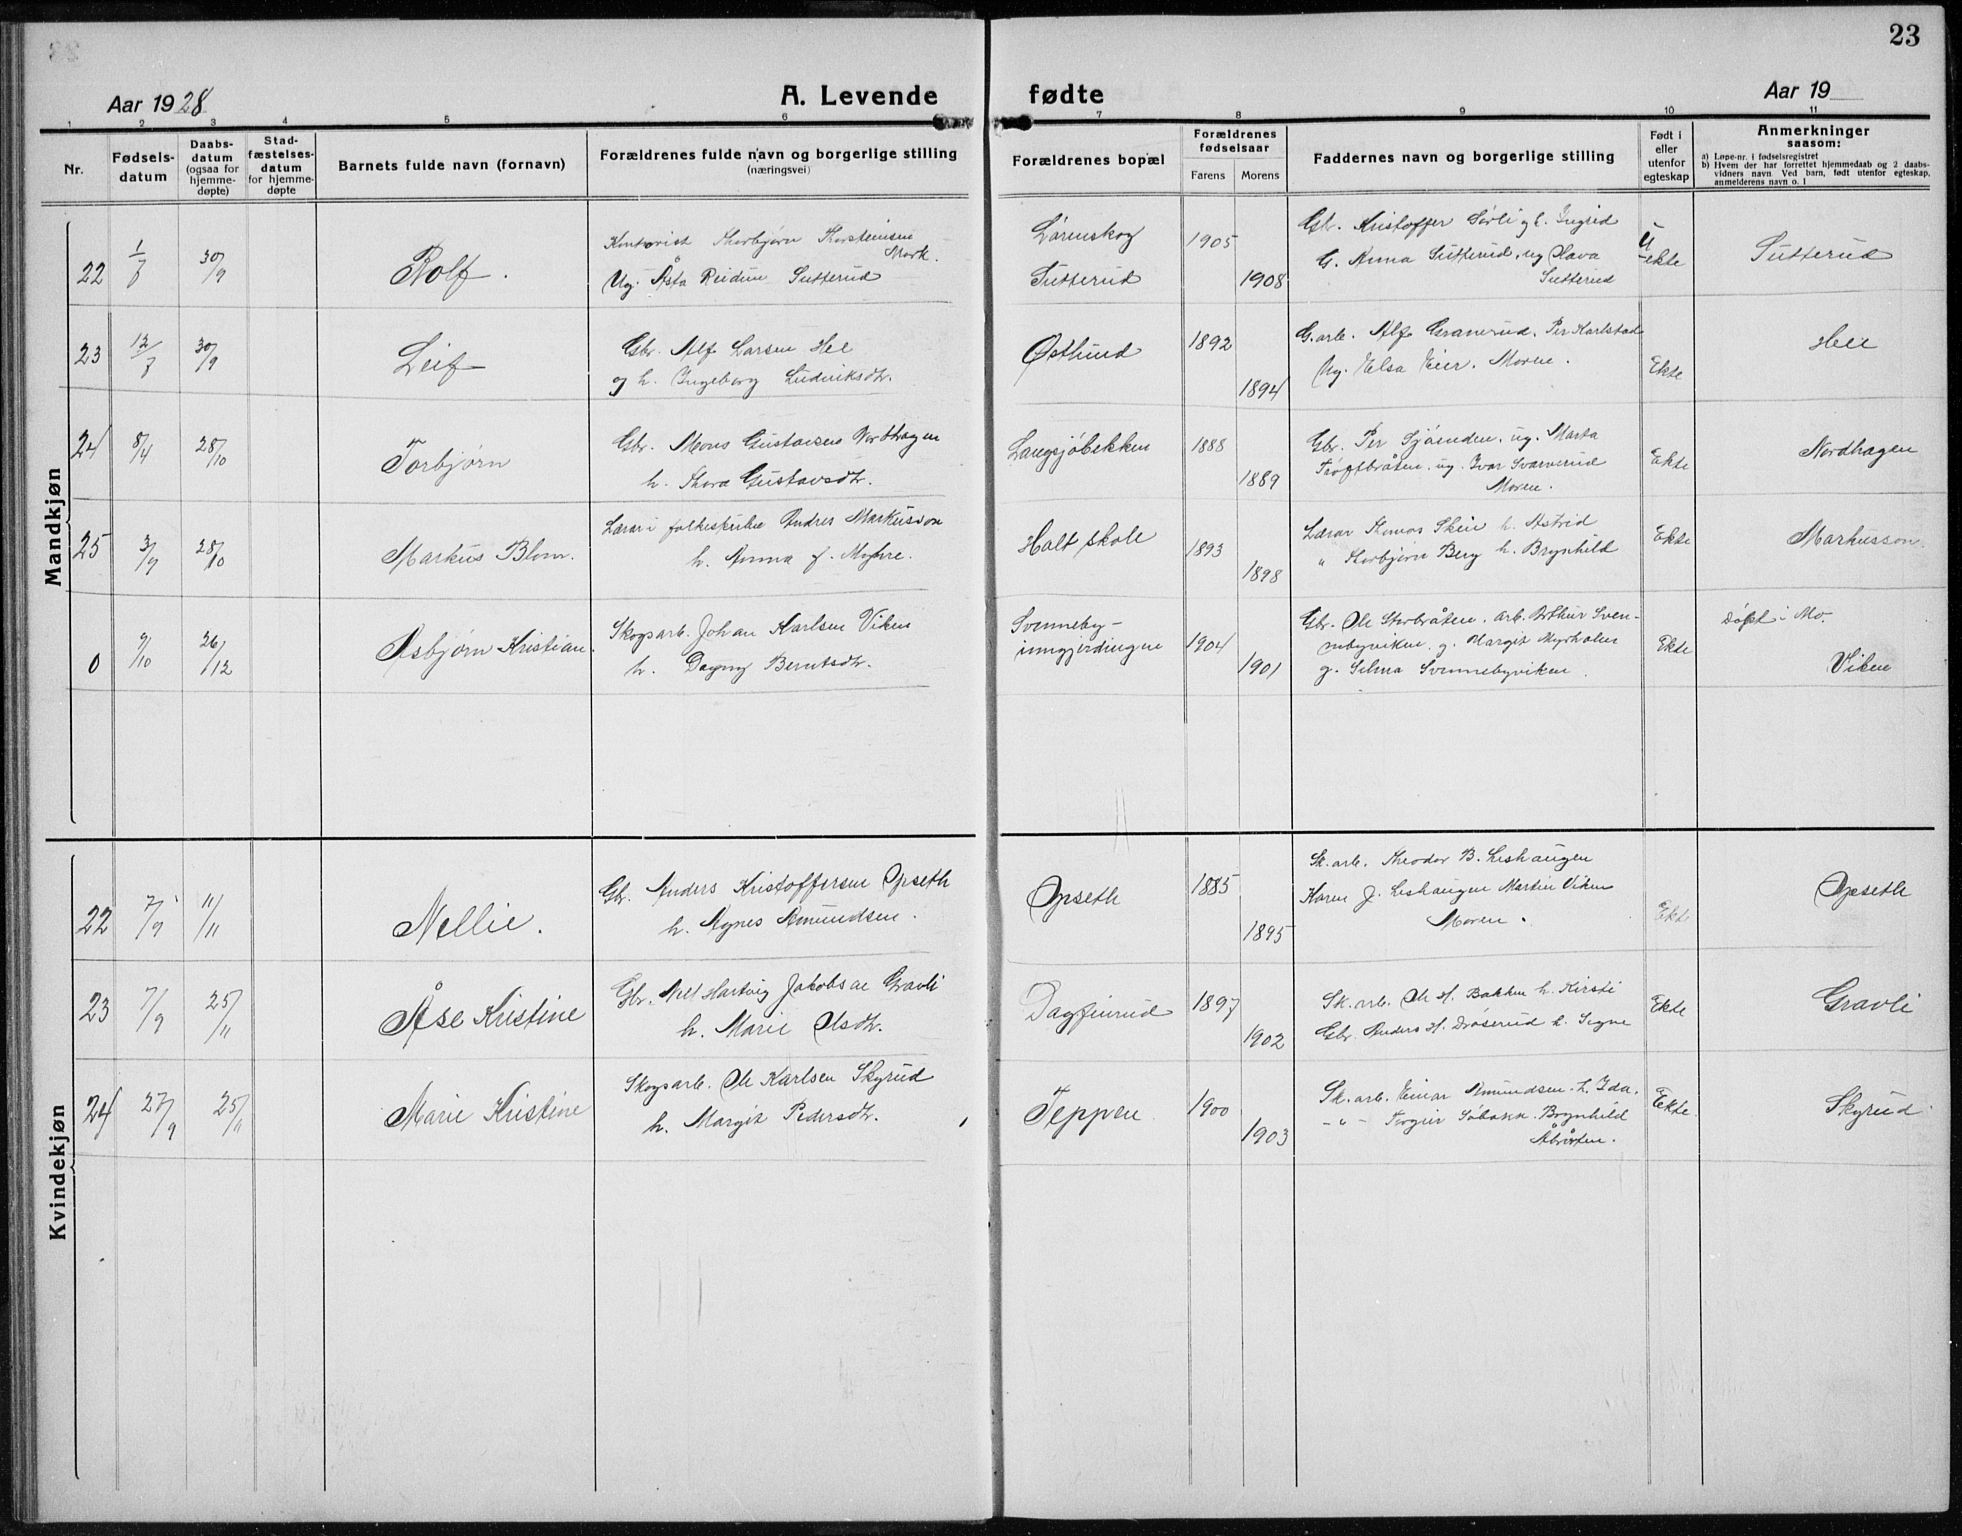 23
Aar 1928
A. Levende
fødte
Aar 19
1 2 3 4 5 6 7 8 9 10 11
Nr.
Fødsels-
datum
Daabs-
datum
(ogsaa for
hjemme-
døpte)
Stad-
fæstelses-
datum
for hjemme-
døpte
Barnets fulde navn (fornavn)
Forældrenes fulde navn og borgerlige stilling
(næringsvei)
Forældrenes bopæl
Forældrenes
fødselsaar
Farens Morens
Faddernes navn og borgerlige stilling
Født i
eller
utenfor
egteskap
Anmerkninger
saasom:
a) Løpe-nr. i fødselsregistret
b) Hvem der har forrettet hjemmedaab og 2 daabs-
vidners navn. Ved barn, født utenfor egteskap,
anmelderens navn o. l
Mandkjøn
22 30/9 Rolf.
Kontorist Thorbjørn Thorsteinsen
Mork.
Ug. Åsta Reidun Sutterud
Lørenskog
Sutterud
1905
1908
Gbr. Kristoffer Sørli og h. Ingrid
G. Anna Sutterud, ug
Sutterud
U
-ekte
Sutterud
23 30/9 Leif
Gbr. Alf Larsen Hee
og h. Ingeborg Ludviksdtr.
Østlund
1892
1894
G.arb. Alf Granerud, Per Karlstad
Ug. Elsa Eier. Moren.
Ekte
Hee
24 8/4 28/10 Torbjørn
Gbr. Mons Gustavsen Nordhagen
h. Thora Gustavsdtr.
Langsjøbekken
1888
1889
Gbr. Per Sjøenden, ug. Marta
Trøftbråten, ug. Ivar Svarverud
Moren.
Ekte
Nordhagen
25 3/9 28/10 Markus Blom.
Lærar i folkeskulen Andres Markusson
h. Anna f. Myhre.
Holt skole
1893
1898
Lærar Tomas Skei h. Astrid
" Thorbjørn Berg h. Brynhild
Ekte
Markusson
0 9/10 26/12 Asbjørn Kristian.
Skogsarb. Johan Karlsen Viken
h. Dagny Berntsdtr.
Svenneby-
inngjerdingen
1904
1901
Gbr. Ole Storbråten, arb. Arthur Sven-
nebyviken, g. Margit Myrholen
g. Selma Svennebyviken.
Ekte
Døpt i Mo.
Viken
Kvindekjøn
22 7/9 11/11 Nellie.
Gbr. Anders Kristoffersen Opseth
h. Agnes Amundsen.
Opseth
1885
1895
Sk.arb. Theodor B. Leshaugen
Karen J. Leshaugen Martin Viken
Moren.
Ekte
Opseth
23 7/9 25/11 Åse Kristine
Gbr. Nils Hartvig Jakobsen Gravli
h. Marie Olsdtr.
Dagfinrud
1897
1902
Sk. arb. Ole H. Bakken h. Kirsti
Gbr. Anders H. Drøserud h. Signe
Ekte
Gravli
24 27/9 25/11 Marie Kristine
Skogsarb. Ole Karlsen Skyrud
h. Margit Pedersdtr.
Teppen
1900
1903
Sk. arb. Einar Amundsen h. Ida.
- " - Torgeir Søbakk. Brynhild
Åbråten.
Ekte.
Skyrud